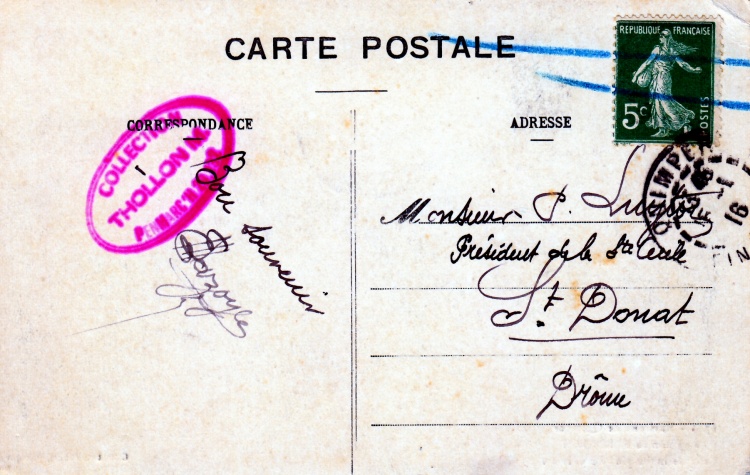 CARTE POSTALE
RÉPUBLIQUE FRANÇAISE
5c
POSTES
CORRESPONDANCE
ADRESSE
COLLECTION
THOLLON
Bon souvenir
Monsieur P.
Président de la Ste Cécile
St. Donat
Drôme
QUIMPER
16